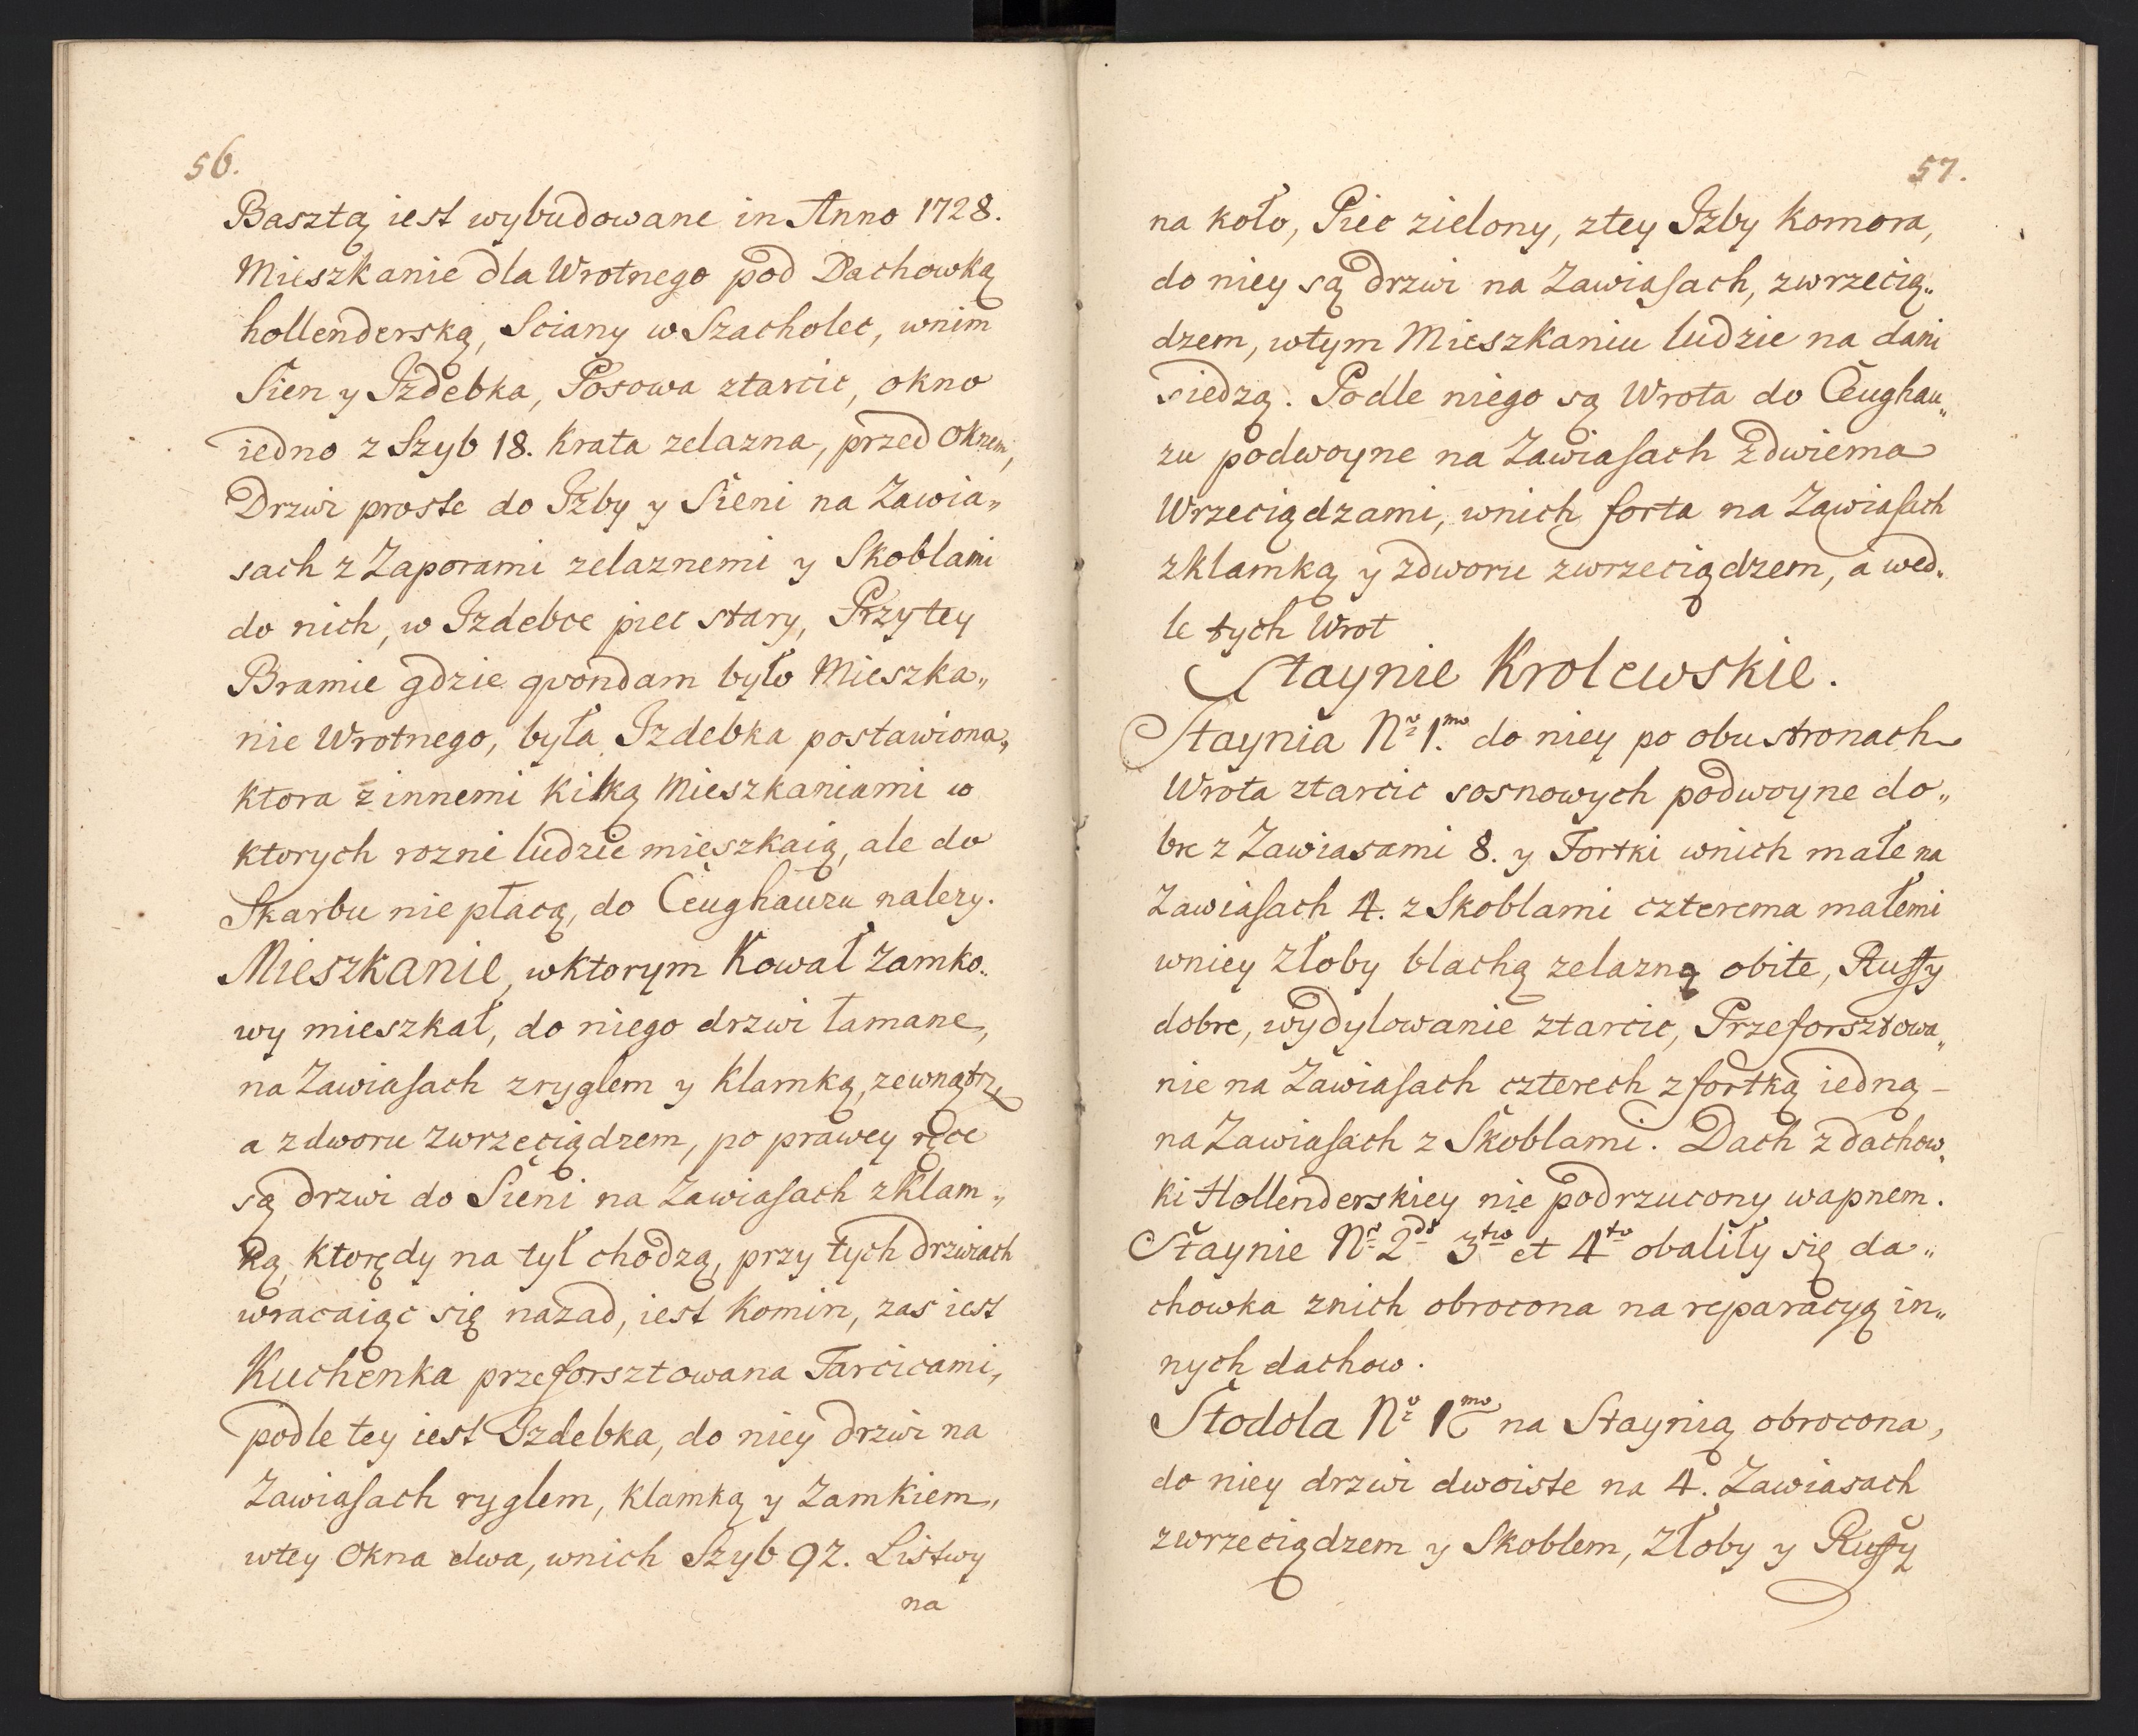 56.
Basztą iest wybudowane in Anno 1728.
Mieszkanie dla Wrotnego pod Dachowką
hollenderską, Sciany w Szacholec, wnim
Sien y Izdebka, Posowa ztarcic, okno
iedno z Szyb 18. Krata zelazna, przed oknem,
Drzwi proste do Izby y Sieni na Zawia„
sach z Zaporami zelaznemi y Skoblami
do nich, w Izdebce piec stary, Przy tey
Bramie gdzie qvondam było Mieszka„
nie Wrotnego, była Izdebka postawiona„
ktora z innemi kilką Mieszkaniami w
ktorych rozni ludzie mieszkaią, ale do
Skarbu nie płacą, do Ceughauzu nalezy.
Mieszkanie, wktorym Kowal Zamko„
wy mieszkał, do niego drzwi łamane,
na Zawiasach zryglem y Klamką, zewnątrz,
a zdworu zwrzeciądzem, po prawey ręce
są drzwi do Sieni na Zawiasach zklam„
ką, ktorędy na tył chodzą, przy tych drzwiach
wracaiąc się nazad, iest Komin, zas iest
Kuchenka przeforsztowana Tarcicami,
podle tey iest Izdebka, do niey drzwi na
Zawiasach ryglem, klamką y Zamkiem,
wtey Okna dwa, wnich Szyb 92. Listwy
na
57.
na koło, Piec zielony, ztey Izby Komora,
do niey są drzwi na Zawiasach, zwrzecią„
dzem, wtym Mieszkaniu ludzie na dani
siedzą. Podle niego są Wrota do Ceughau„
zu podwoyne na Zawiasach zdwiema
Wrzeciądzami, wnich forta na Zawiasach
zklamką y zdworu zwrzeciądzem, a wed„
le tych Wrot
Staynie Krolewskie.
Staynia No 1.mo do niey po obu stronach
Wrota ztarcic sosnowych podwoyne do„
bre z Zawiasami 8. y Fortki wnich małe na
Zawiasach 4. z Skoblami czterema małemi
wniey Złoby blachą zelazną obite, Russy
dobre, wydylowanie ztarcic, Przeforsztowa„
nie na Zawiasach czterech z fortką iedną –
na Zawiasach z Skoblami. Dach z dachow„
ki Hollenderskiey nie podrzucony wapnem.
Staynie No 2do 3tio et 4to obaliły się da„
chowka znich obrocona na reparacyą in„
nych dachow.
Stodola No 1mo na Staynią obrocona,
do niey drzwi dwoiste na 4. Zawiasach
zwrzeciądzem y Skoblem, Złoby y Russy